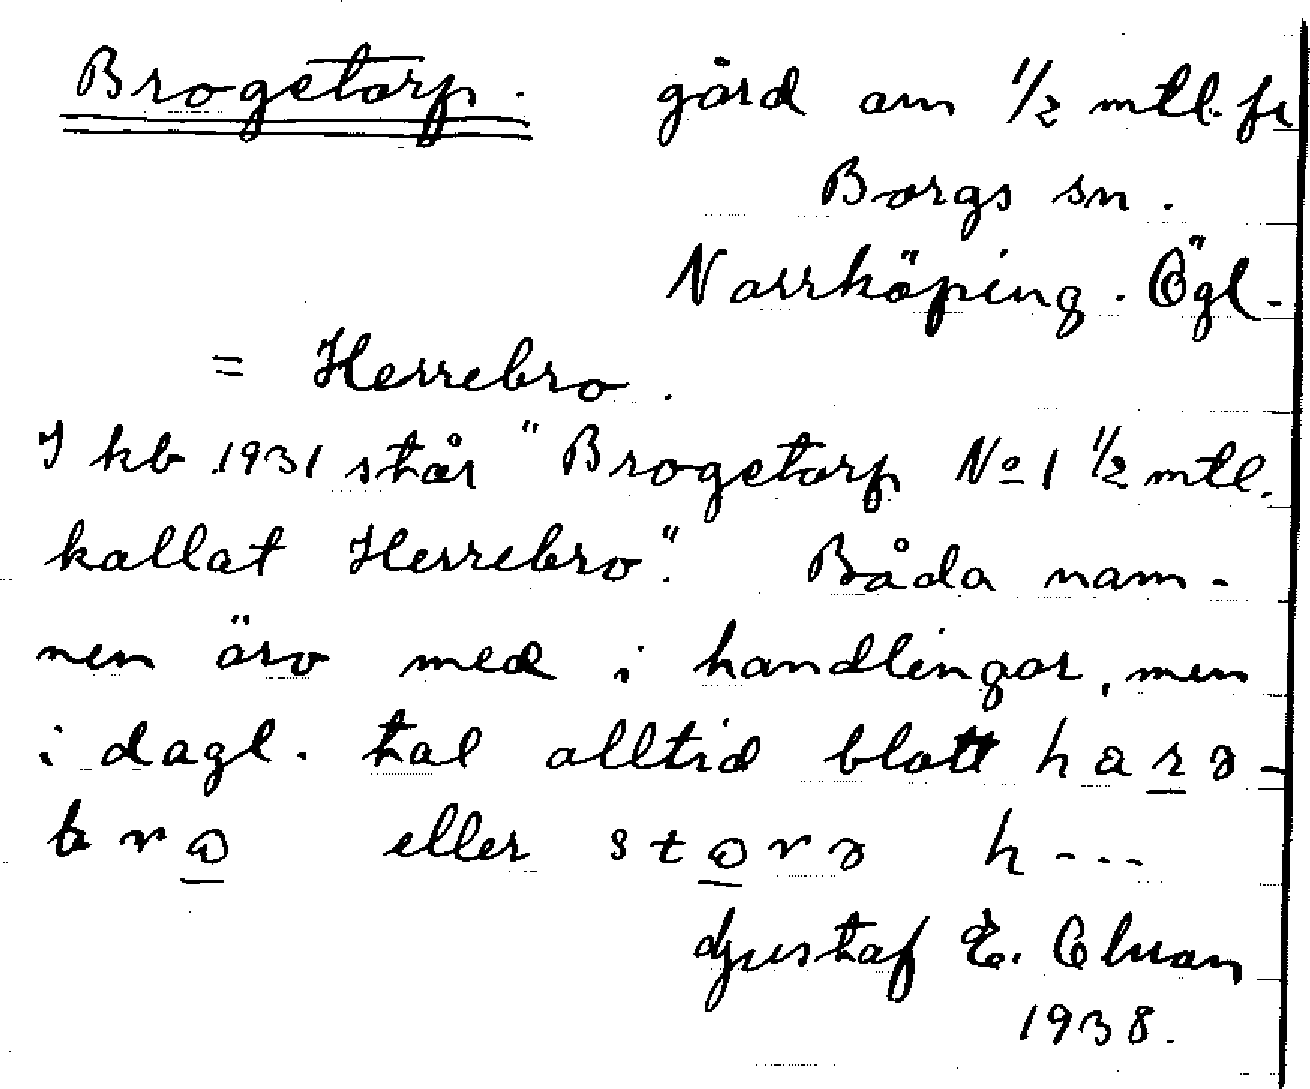 Brogetorp. gård om 1/2 mtl. fr
Borgs sn.
Norrköping. Ögl.
= Herrebro.
I kb 1931 står "Brogetorp No 1 1/2 mtl.
kallat Herrebro." Båda nam-
nen äro med i handlingar, men
i dagl. tal alltid blott harə-
brω eller stωrə h---
Gustaf E.
1938.